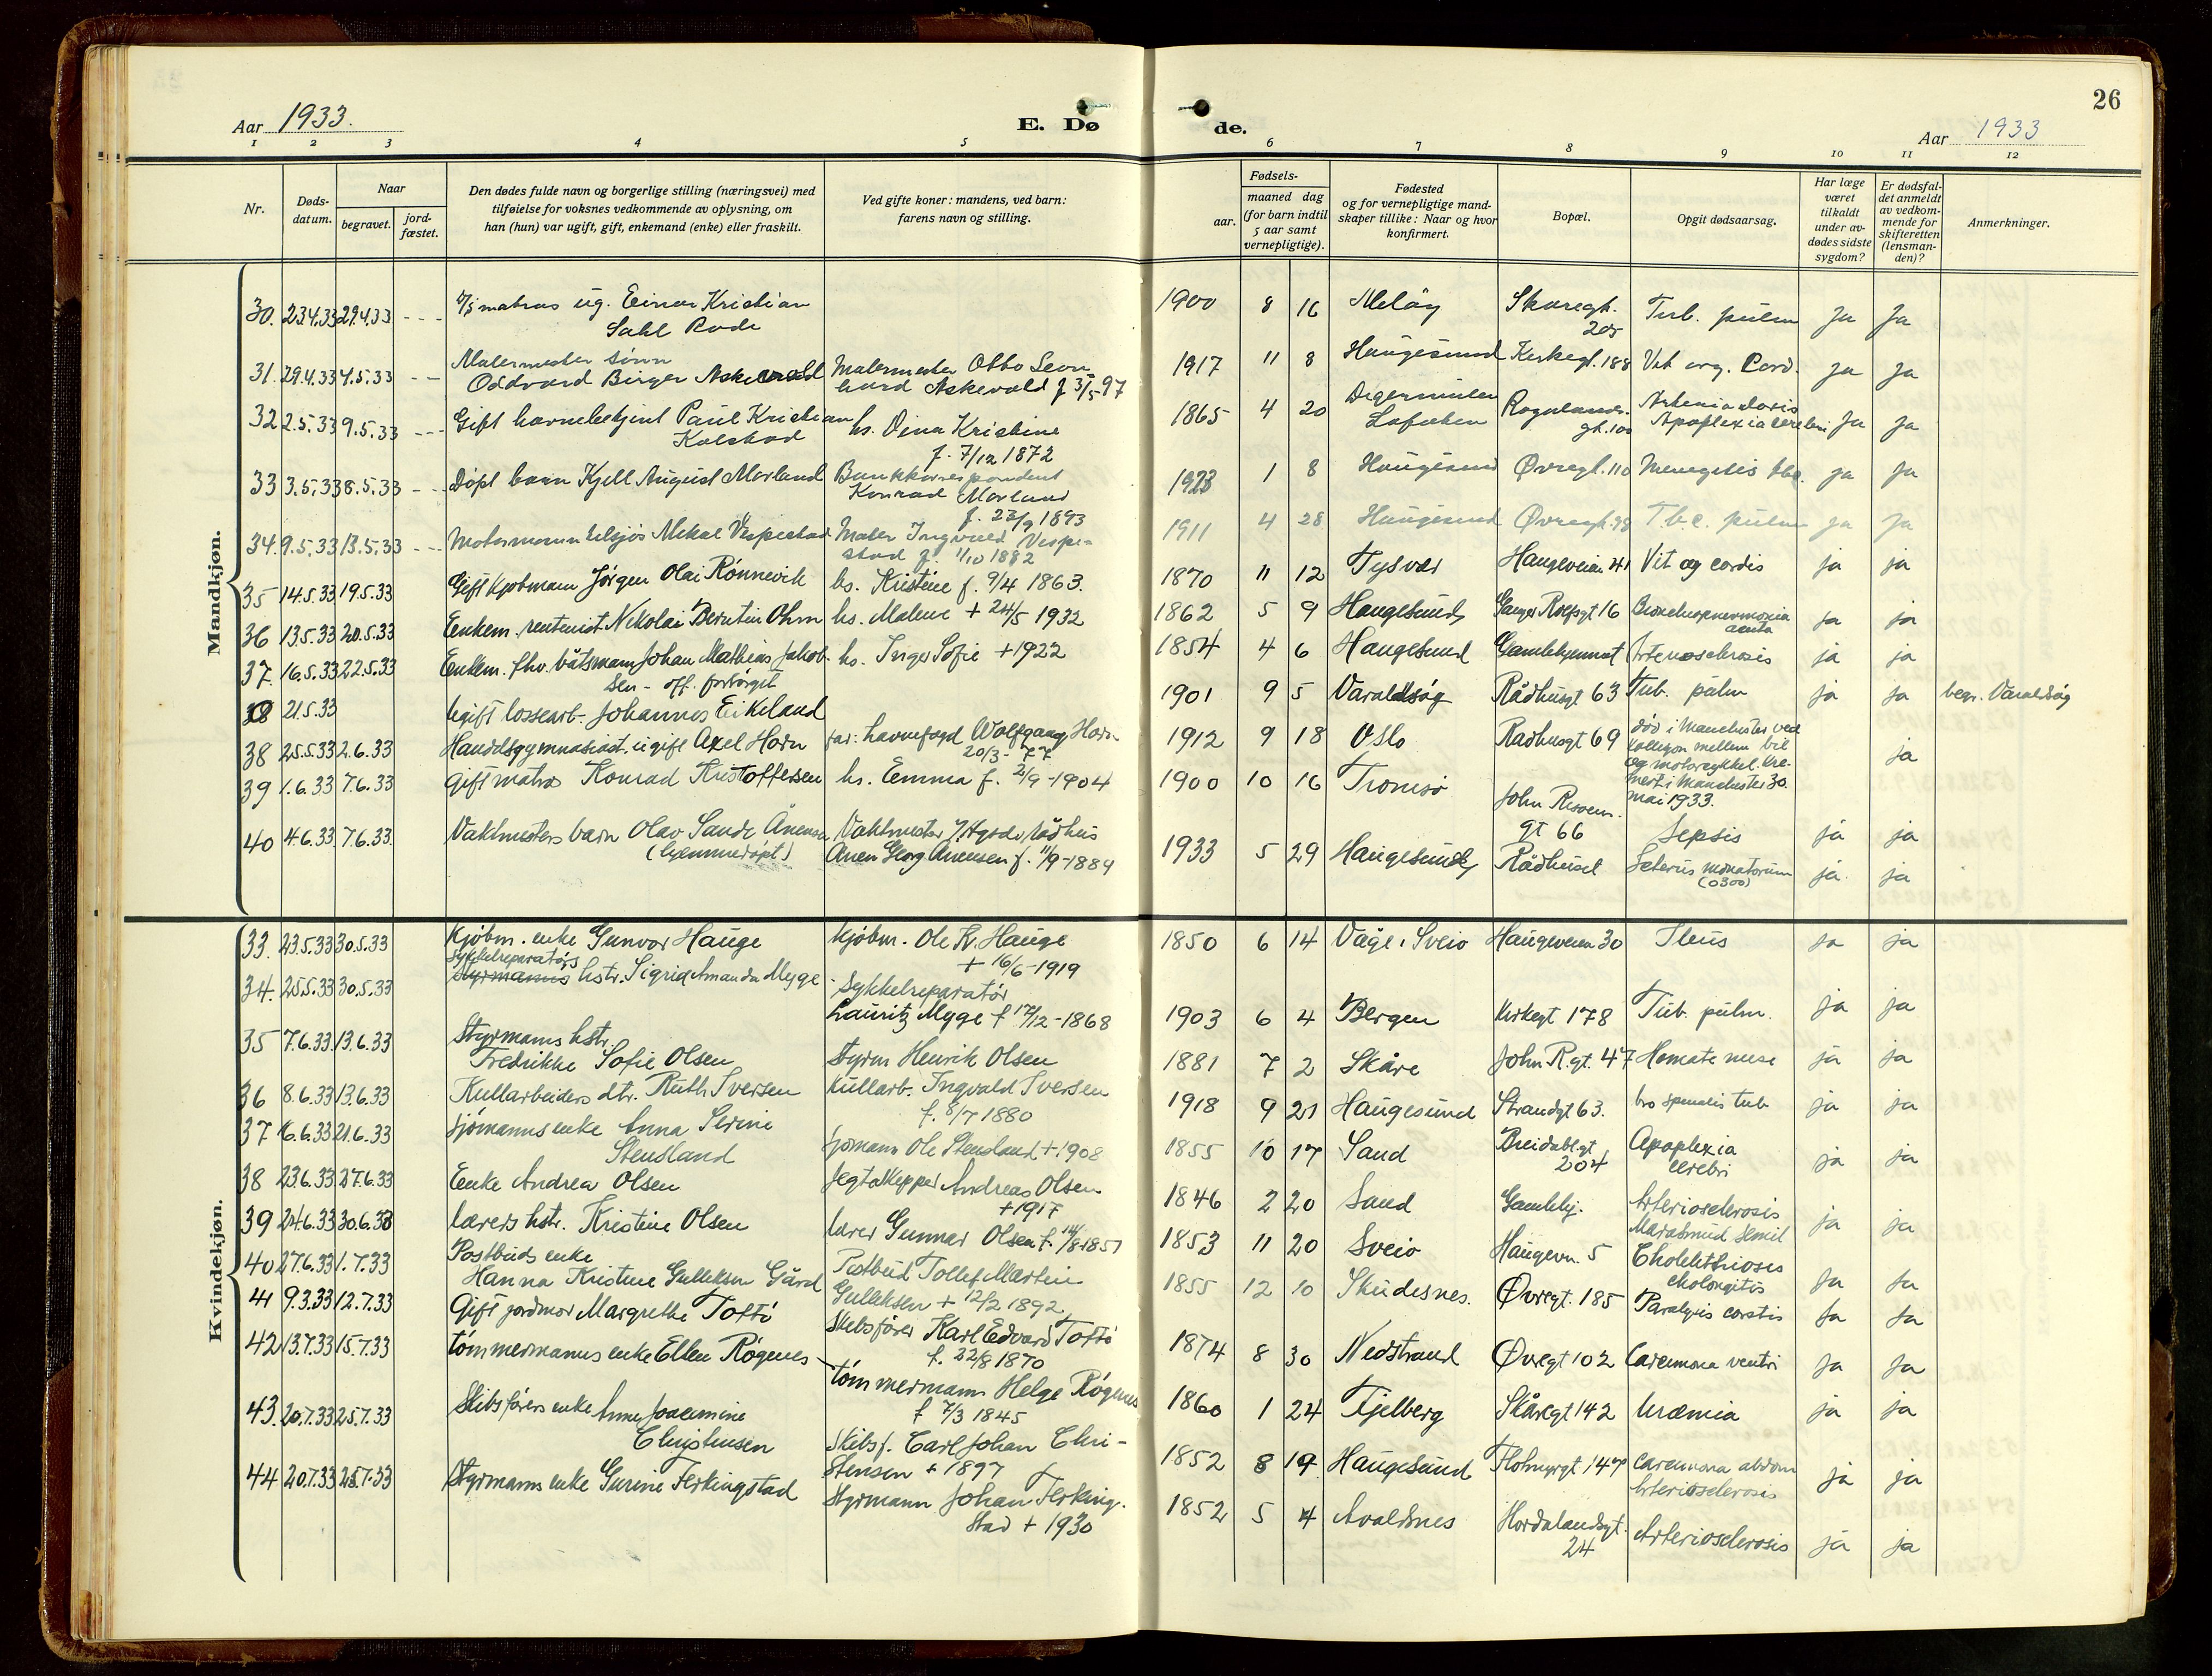 26
Aar 1933.
E. Dø
de.
Aar 1933
1 2 3 4 5 6 7 8 9 10 11 12
Nr.
Døds-
datum.
Naar
begravet.
jord-
fæstet.
Den dødes fulde navn og borgerlige stilling (næringsvei) med
tilføielse for voksnes vedkommende av oplysning, om
han (hun) var ugift, gift, enkemand (enke) eller fraskilt.
Ved gifte koner: mandens, ved barn:
farens navn og stilling.
Fødsels-
aar.
maaned dag
(for barn indtil
5 aar samt
vernepligtige).
Fødested
og for vernepligtige mand-
skaper tillike: Naar og hvor
konfirmert.
Bopæl.
Opgit dødsaarsag.
Har læge
været
tilkaldt
under av-
dødes sidste
sygdom?
Er dødsfal-
det anmeldt
av vedkom-
mende for
skifteretten
(lensman-
den)?
Anmerkninger.
Mandkjøn.
30. 23.4.33 29.4.33 - - - matros ug. Einar Kristian 1900 8 16 Meløy Skaregt. Tub. pulm ja ja
Sahl Bode 205
31. 29.4.33 4.5.33 - - Malermester sønn Malermester Otto Leon 1917 11 8 Haugesund Kirkegt. 188 Vit org. Cord. ja ja
Oddvard Birger Askevold hard Askevold f 3/5-97
32 2.5.33 9.5.33 - - - Gift havnebetjent Paul Kristian hs. Oina Kristine 1865 4 20 Digermulen Rogalands- Arteriosloris ja ja
Kolstad f. 7/12 1872 Lofoten gt. 100 Apoplexia cerebri
33 3.5.33 8.5.33 - - Døpt barn Kjell August Morland Bankkorrespondent 1923 1 8 Haugesund Øvregt. 110 Menegitis tbc. ja ja
Konrad Morland
f. 23/9 1893
34. 9.5.33 13.5.33 - - - Motormann tilsjøs Mikal Vespestad Maler Ingvald Vespe- 1911 4 28 Haugesund Øvregt. 98 T.b.c. pulm ja ja
stad f. 1/10 1882
35 14.5.33 19.5.33 Gift kjøbmann Jørgen Olai Rønnevik hs. Kristine f. 9/4 1863. 1870 11 12 Tysvær Haugeveien 41 Vit og cordis ja ja
36 13.5.33 20.5.33 Enkem. rentenist Nikolai Berntin Ohm hs. Malene + 24/5 1932 1862 5 9 Haugesund Ganger Rolfsgt 16 Bronchopneumonia ja ja
acuta
37. 16.5.33 22.5.33 Enkem. fhv. båtsmann Johan Mathias Jakob- hs. Inger Sofie + 1922 1854 4 6 Haugesund Gamlehjemmet Arteriosclerosis ja ja
sen - off. forsørget
38 21.5.33 Ugift lossearb. Johannes Eikeland 1901 9 5 Varaldsøy Rådhusgt 63 Tub. pulm ja ja begr. Varaldsøy
38 25.5.33 2.6.33 Handelsgymnasiast. ugift Axel Horn far: havnefogd Wolfgang Horn 1912 9 18 Oslo Rådhusgt 69 død i Manchester ved ja
20/3-77 kollisjon mellem bil
og motorsykkel. Kre-
mert i Manchester 30.
mai 1933.
39 1.6.33 7.6.33 Gift matros Konrad Kristoffersen hs. Emma f. 2/9-1904 1900 10 16 Tromsø John Rissøen.
gt 66 Sepsis ja ja
40 4.6.33 7.6.33. Vaktmesters barn Olav Sande Ånensen Vaktmester v/Hgsds rådhus 1933 5 29 Haugesund Rådhuset Icterus neonatorum ja ja
(hjemmedøpt) Anen Georg Anensen f. 11/9-1889
Kvindekjøn.
33. 23.5.33 30.5.33 Kjøbm. enke Gunvor Hauge Kjøbm. Ole Kr. Hauge 1850 6 14 Våge, Sveio Haugeveien 30 Ileus ja ja
+ 16/6-1919
34. 25.5.33 30.5.33 sykkelreparatørs
styrmanns hstr. Sigrid Amanda Mygge Sykkelreparatør
Lauritz Mygge f 17/12-1868 1903 6 4 Bergen Kirkegt 178 Tub. pulm. ja ja
35 7.6.33 13.6.33 Styrmanns hstr.
Fredrikke Sofie Olsen Styrm Henrik Olsen 1881 7 2 Skåre John R.gt. 47 Hematemese ja ja
36 8.6.33 13.6.33 Kullarbeiders dtr. Ruth Iversen Kullarb. Ingvald Iversen 1918 9 21 Haugesund Strandgt 63. tub ja ja
f. 8/7 1880
37 16.6.33 21.6.33 Sjømanns enke Anna Serine
Stensland Sjømann Ole Stensland + 1908 1855 10 17 Sand Breidablgt. Apoplexia ja ja
204 cerebri
38 23.6.33 27.6.33 Enke Andrea Olsen Jegtskipper Andreas Olsen 1846 2 20 Sand Gamlehj. Arteriosclerosis ja ja
+ 1917 Marasmus senil
39 24.6.33 30.6.33 lærers hstr. Kristine Olsen lærer Gunnar Olsen f. 14/8-1851 1853 11 20 Sveio Haugevn. 5 Cholelithiosis
cholangitis ja ja
40 27.6.33 1.7.33 Postbuds enke
Hanna Kristine Gulleksen Gård Postbud Tollef Martin 1855 12 10 Skudesnes. Øvregt. 185 Paralysis cordis ja ja
Gulleksen + 12/2 1892
41 9.3.33 12.7.33 Gift jordmor Margrethe Toftø Skibsfører Karl Edvard Toftø 1874 8 30 Nedstrand Øvregt 102 Carcinoma ventri ja ja
f. 22/8 1870
42 13.7.33 15.7.33 tømmermanns enke Ellen Røgenes tømmermann Helge Røgenes 1860 1 24 Fjelberg Skåregt 142 Uræmia ja ja
f 7/3 1845
43. 20.7.33 25.7.33 Skibsførers enke Anne Joacimine
Christensen Skibsf. Carl Johan Chri- 1852 8 19 Haugesund Flotmyrgt 147 Carcinoma abdom ja ja
stensen + 1897 Arteriosclerosis
44 20.7.33 25.7.33 Styrmanns enke Gurine Ferkingstad Styrmann Johan Ferking- 1852 5 4 Avaldsnes Hordalandsgt. Arteriosclerosis ja ja
stad + 1930 24